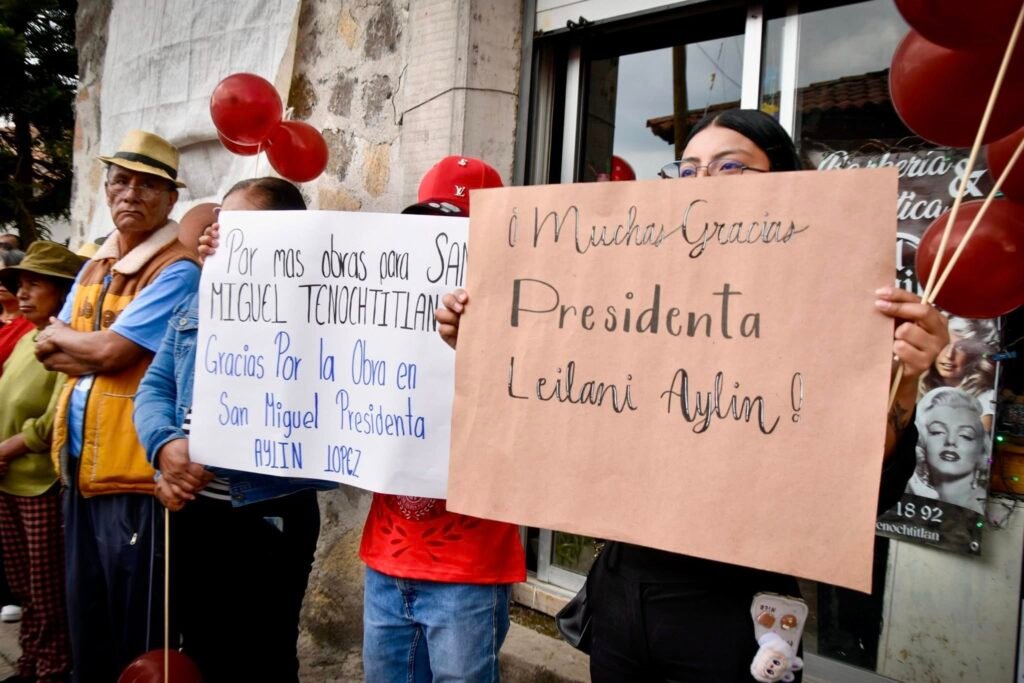 Por mas obras para SAN
MIGUEL TENOCHTITLAN
Gracias Por la Obra en
San Miguel Presidenta
AYLIN LOPEZ
¡ Muchas Gracias
Presidenta
Leilani Aylin !
Barbería
&
18 92
Tenochtitlan